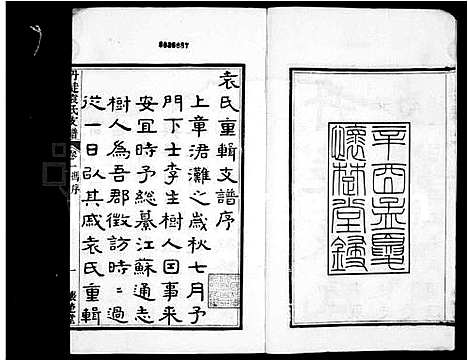 辛酉孟夏
懷楚堂錄
袁氏重輯支譜序
上章涒灘之歲秋七月予
門下士李生樹人因事來
安宜時予總纂江蘇通志
樹人為吾郡徵訪時時過
從一日臥其戚袁氏重輯
丹徒袁氏支譜
卷一 馮序
一